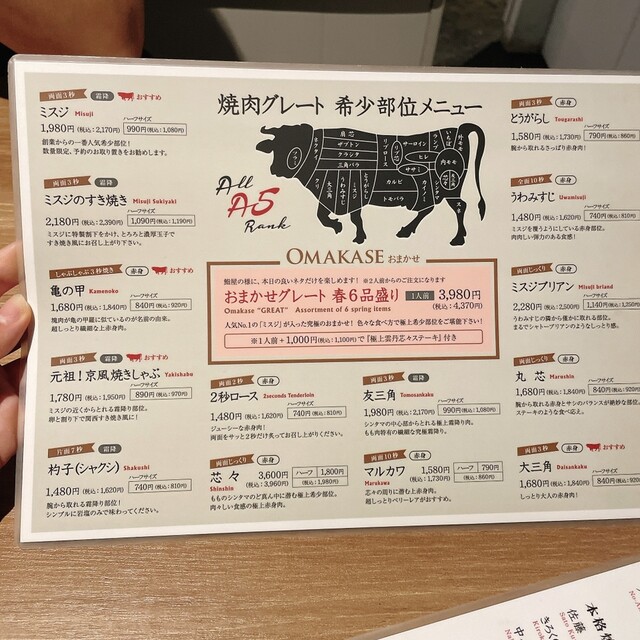 焼肉グレート 希少部位メニュー
All
A5
Rank
両面3秒 霜降 おすすめ
ミスジ Misuji
1,980円(税込:2,170円)
ハーフサイズ
990円(税込:1,080円)
創業からの一番人気希少部位!
数量限定、予約のお取り置きをお勧めします。
両面3秒 霜降
ミスジのすき焼き Misuji Sukiyaki
ハーフサイズ
2,180円(税込:2,390円)
1,090円(税込:1,190円)
ミスジに特製割下をかけ、とろろと濃厚玉子で
すき焼き風にお召し上がり下さい。
しゃぶしゃぶ3秒焼き 赤身 おすすめ
亀の甲 Kamenoko
ハーフサイズ
1,680円(税込:1,840円)
840円(税込:920円)
焼肉が亀の甲羅に似ているのが名前の由来。
超しっとり繊細な上赤身肉。
両面3秒 霜降 おすすめ
元祖!京風焼きしゃぶ Yakishabu
ハーフサイズ
1,780円(税込:1,950円)
890円(税込:970円)
ミスジの近くからとれる霜降り部位。
卵と割り下で関西すき焼き風に!
片面7秒 霜降
杓子(シャクシ) Shakushi
ハーフサイズ
1,480円(税込:1,620円)
740円(税込:810円)
腕から取れる霜降り部位!
シンプルに岩塩のみで味わってください。
OMAKASE おまかせ
鮨屋の様に、本日の良いネタだけを楽しめます! ※2人前からのご注文になります
おまかせグレート 春6品盛り 1人前 3,980円
Omakase "GREAT" Assortment of 6 spring items (税込:4,370円)
人気No.1の「ミスジ」が入った究極のおまかせ! 色々な食べ方で極上希少部位をご堪能下さい!
※1人前+1,000円(税込:1,100円)で『極上雲丹芯々ステーキ』付き
両面2秒 赤身
2秒ロース 2seconds Tenderloin
ハーフサイズ
1,480円(税込:1,620円)
740円(税込:810円)
ジューシーな赤身肉!
両面をサッと2秒だけ炙ってお召し上がりください。
両面じっくり 赤身
芯々 Shinshin
3,600円
(税込:3,960円)
ハーフ 1,800円
(税込:1,980円)
もものシンタマのど真ん中に潜む極上希少部位。
肉々しい食感の極上赤身肉。
両面5秒 霜降
友三角 Tomosankaku
ハーフサイズ
1,980円(税込:2,170円)
990円(税込:1,080円)
シンタマの中心部からとれる極上霜降り肉。
もも肉特有の繊細な究極霜降り。
両面10秒 赤身
マルカワ
Marukawa
1,580円
(税込:1,730円)
ハーフ 790円
(税込:860円)
芯々の周りに潜む上赤身肉。
超しっとりベリーレアがおすすめ。
両面5秒 赤身
とうがらし Tougarashi
ハーフサイズ
1,580円(税込:1,730円)
790円(税込:860円)
腕から取れるさっぱり赤身肉!
全面10秒 赤身
うわみすじ Uwamisuji
ハーフサイズ
1,480円(税込:1,620円)
740円(税込:810円)
ミスジを覆うようにしている赤身部位。
肉肉しい弾力のある食感!
両面じっくり 赤身
ミスジブリアン Misuji briand
ハーフサイズ
2,280円(税込:2,500円)
1,140円(税込:1,250円)
うわみすじの隣から僅かに取れる部位。
まるでシャトーブリアンのようなしっとり感。
両面じっくり 赤身
丸芯 Marushin
ハーフサイズ
1,680円(税込:1,840円)
840円(税込:920円)
腕から取れる赤身とサシのバランスが絶妙な部位。
ステーキのような食べ応え。
両面5秒 赤身 おすすめ
大三角 Daisankaku
ハーフサイズ
1,680円(税込:1,840円)
840円(税込:920円)
しっとり大人の赤身肉!
本格焼
佐藤
Sato
きろく
Kiroku